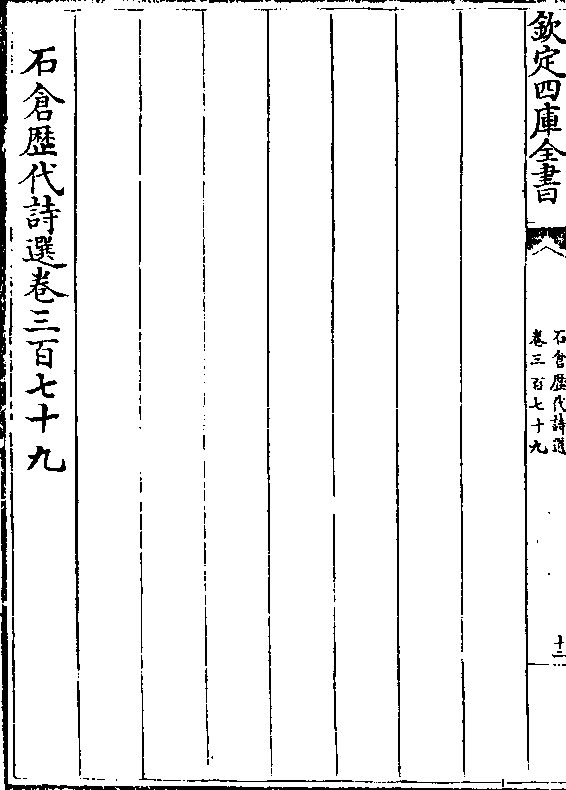 欽定四庫全書
石倉歷代詩選
卷三百七十九
十二
石倉歷代詩選卷三百七十九